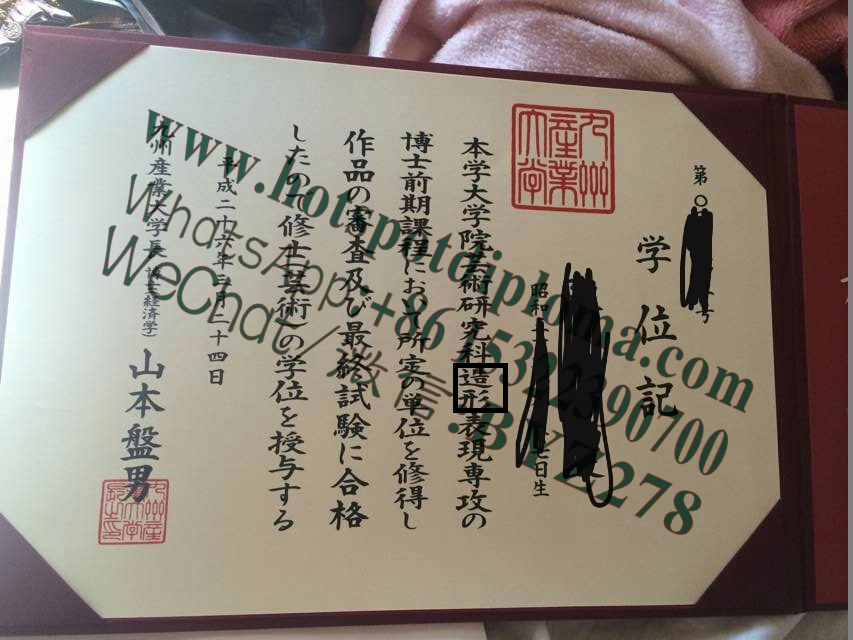 第〇
号
九州
産業
大学
学位記
昭和
七日生
本学大学院芸術研究科造形表現専攻の
博士前期課程において所定の単位を修得し
作品の審査及び最終試験に合格
したので修士(芸術)の学位を授与する
平成二十六年三月二十四日
九州産業大学長(博士経済学)山本盤男
www.hot-ptcdiploma.com
WhatsApp:+86 15322390700
WeChat/微信:BYZ278